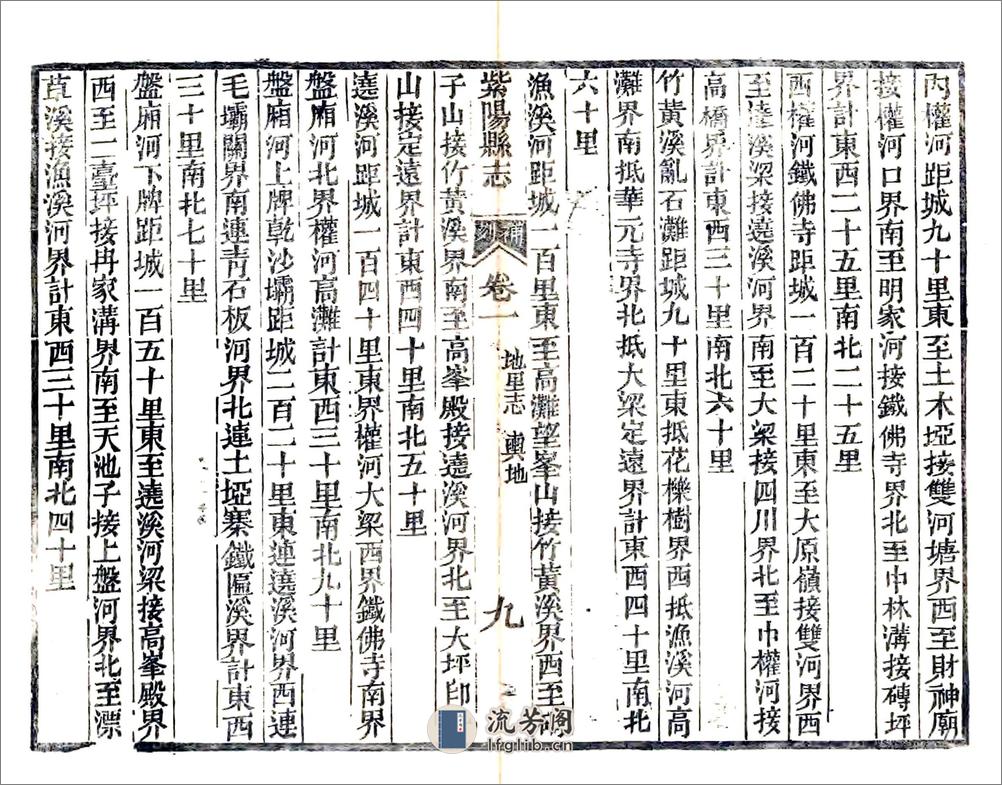 內權河距城九十里東至土木埡接雙河塘界西至財神廟
接權河口界南至明家河接鐵佛寺界北至中林溝接磚坪
界計東西二十五里南北二十五里
西權河鐵佛寺距城一百二十里東至大原嶺接雙河界西
至遶溪梁接遶溪河界南至大梁接四川界北至中權河接
高橋界計東西三十里南北六十里
竹黃溪亂石灘距城九十里東抵花櫟樹界西抵漁溪河高
灘界南抵華元寺界北抵大梁定遠界計東西四十里南北
六十里
漁溪河距城一百里東至高灘望峯山接竹黃溪界西至
紫陽縣志 卷一 地里志 輿地 九
子山接竹黃溪界南至高峯殿接遶溪河界北至大坪印
山接定遠界計東西四十里南北五十里
遶溪河距城一百四十里東界權河大梁西界鐵佛寺南界
盤廂河北界權河高灘計東西三十里南北九十里
盤廂河上牌乾沙壩距城二百二十里東連遶溪河界西連
毛壩關界南連青石板河界北連土埡寨鐵匾溪界計東西
三十里南北七十里
盤廂河下牌距城一百五十里東至遶溪河梁接高峯殿界
西至一臺坪接冉家溝界南至天池子接上盤河界北至漂
草溪接漁溪河界計東西三十里南北四十里
流芳閣
lfglib.cn